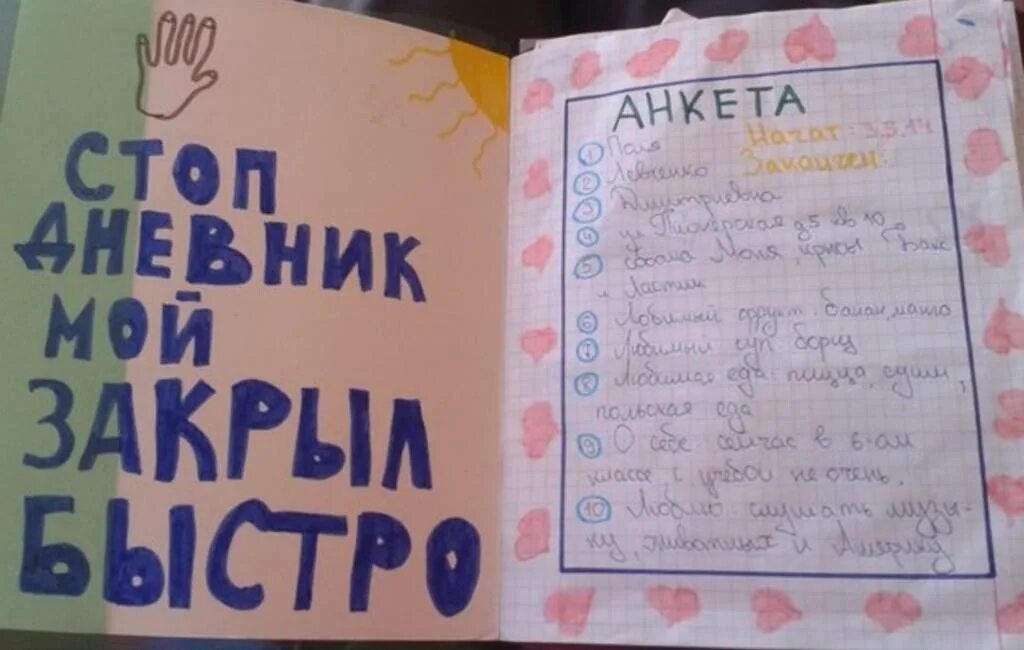 СТОП
ДНЕВНИК
МОЙ
ЗАКРЫЛ
БЫСТРО
АНКЕТА
Начат: 3.3.14
Закончен:
1 Поля
2 Левченко
3 Дмитриевна
4 ул Пионерская д5 кв 10
5 собака Моня, крысы Бакс
и Ластик
6 Любимый фрукт: банан, манго
7 Любимый суп борщ
8 Любимая еда: пицца, суши,
польская еда
9 О себе сейчас в 6-ом
классе, с учёбой не очень.
10 Люблю: слушать музы-
ку, животных и Америку